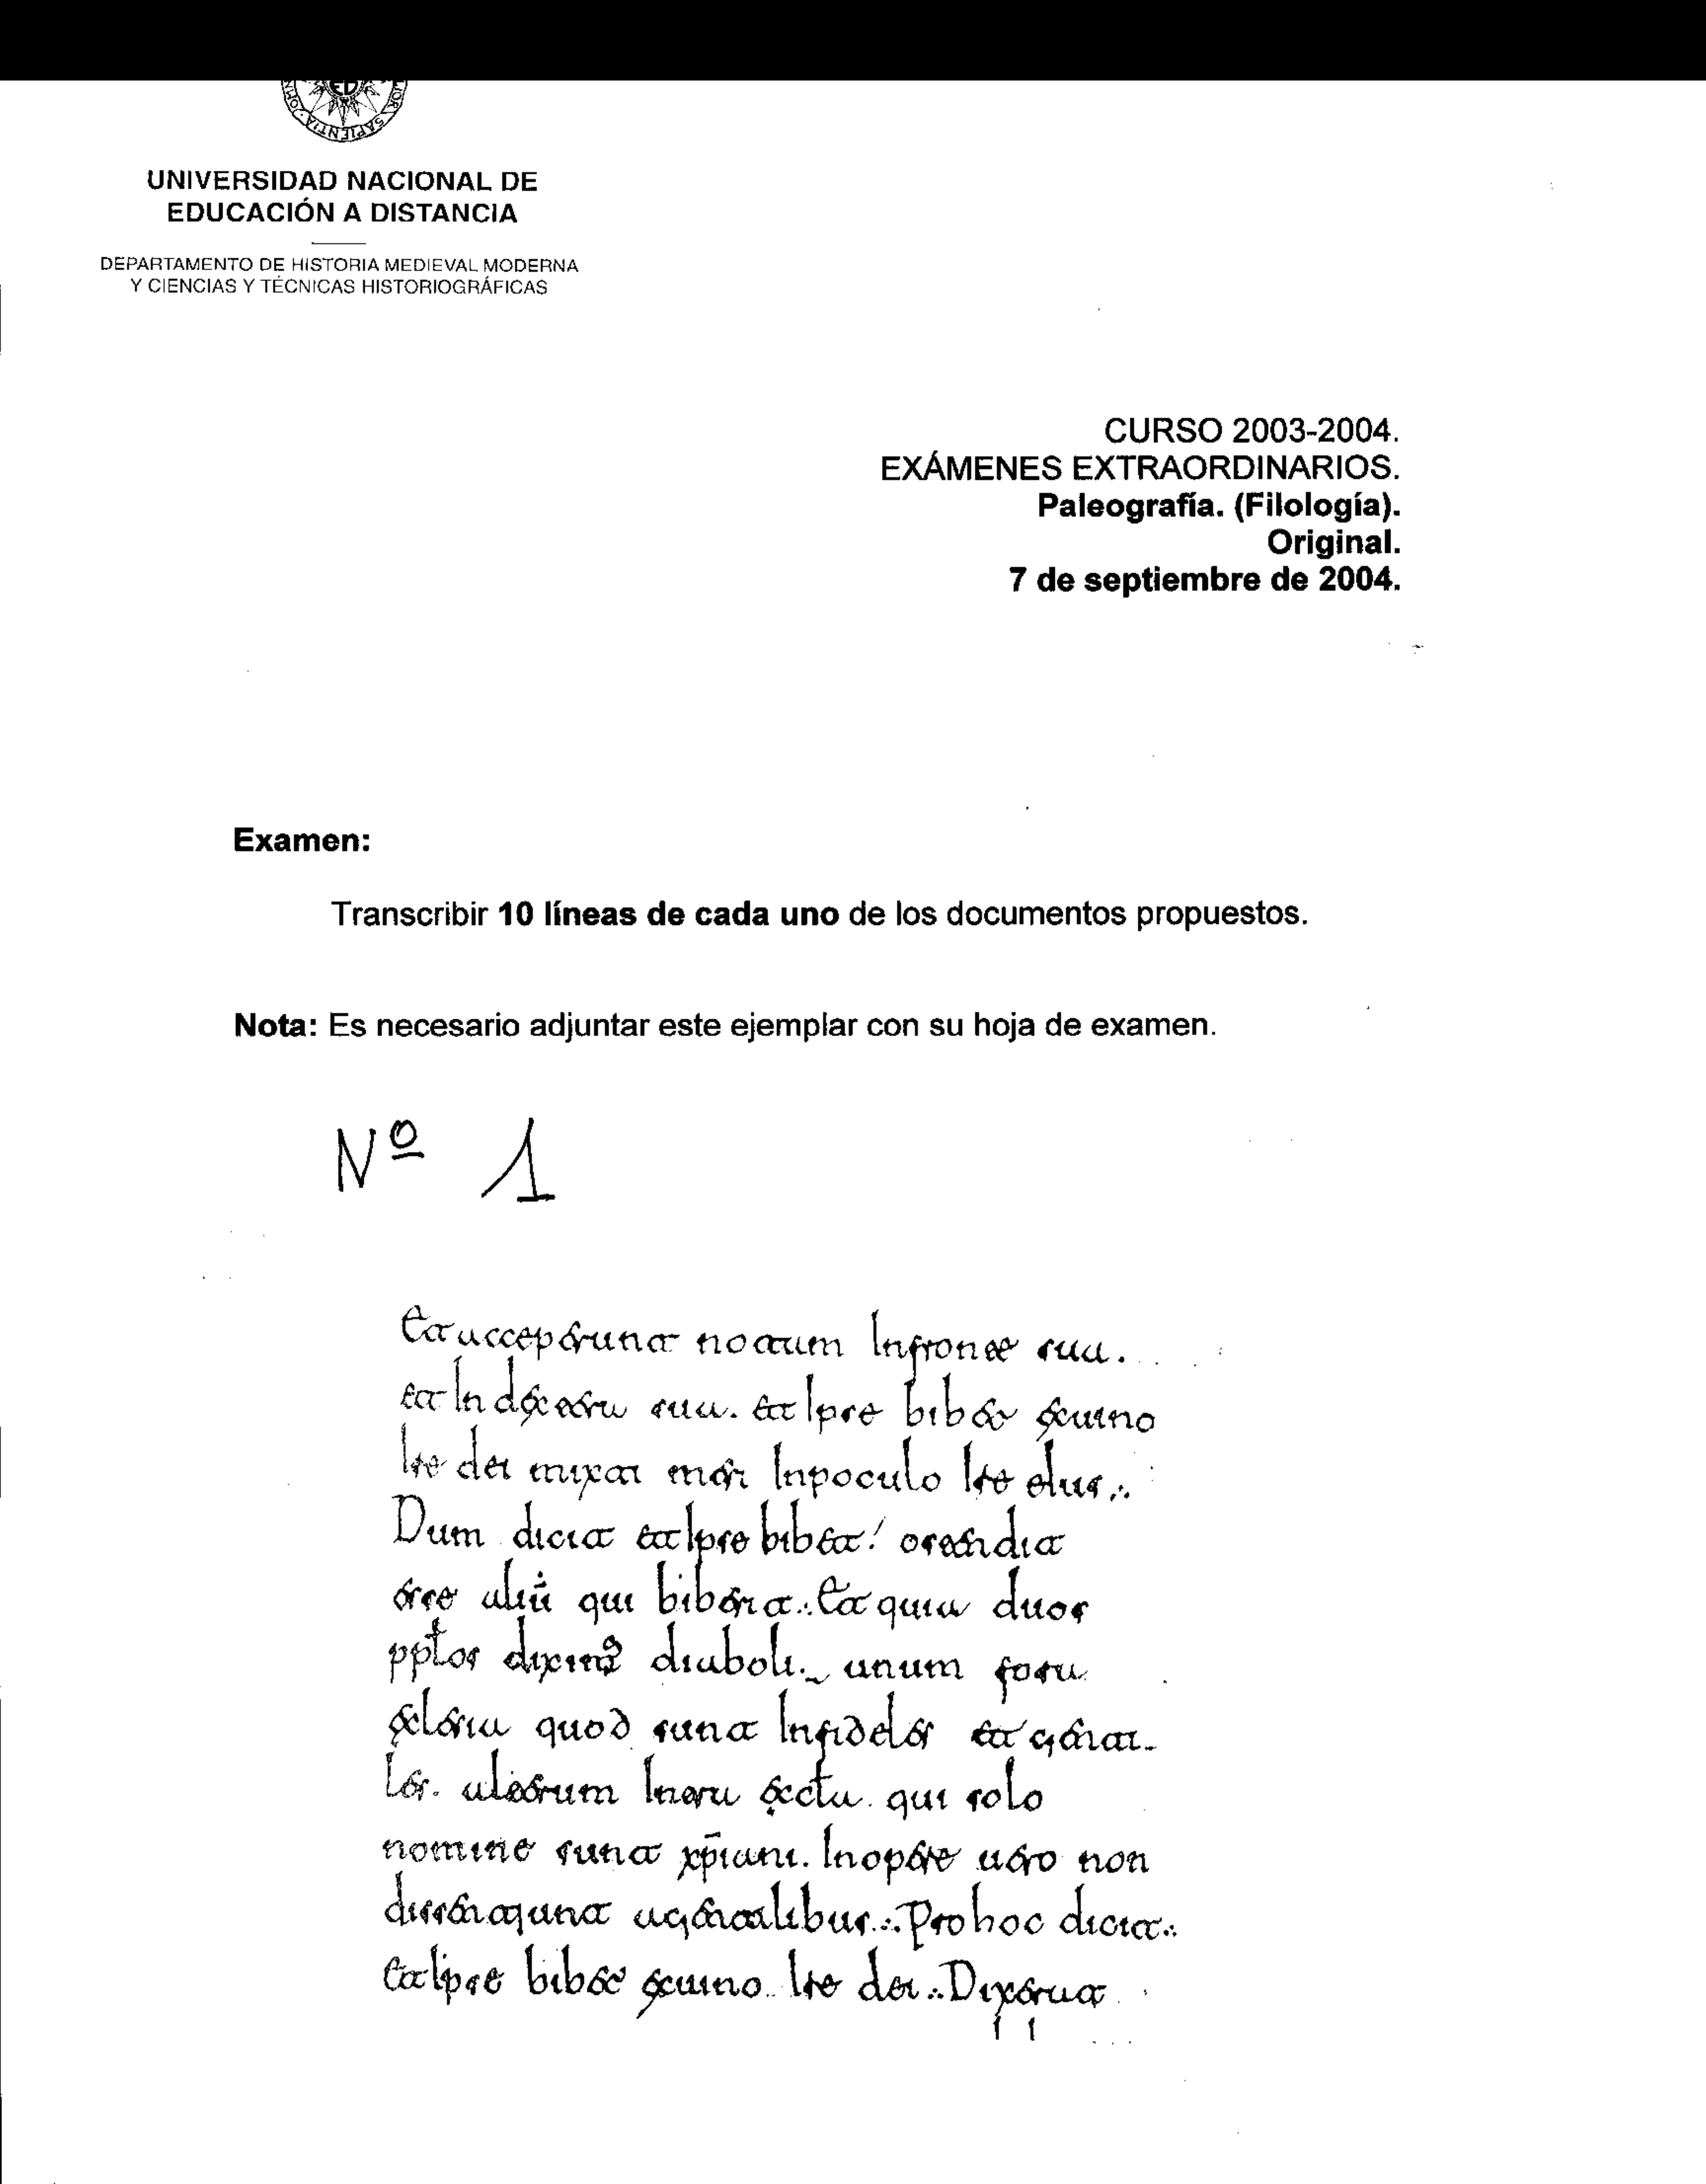 ED
OMN
IOR SAPIENTIA
UNIVERSIDAD NACIONAL DE
EDUCACIÓN A DISTANCIA
DEPARTAMENTO DE HISTORIA MEDIEVAL MODERNA
Y CIENCIAS Y TÉCNICAS HISTORIOGRÁFICAS
CURSO 2003-2004.
EXÁMENES EXTRAORDINARIOS.
Paleografía. (Filología).
Original.
7 de septiembre de 2004.
Examen:
Transcribir 10 líneas de cada uno de los documentos propuestos.
Nota: Es necesario adjuntar este ejemplar con su hoja de examen.
Nº 1
Et acceperunt notam In fronte sua.
et In dextera sua. et Ipse bibet ex uino
Ire dei mixti meri In poculo Ire eius.
Dum dicit et Ipse bibet! ostendit
esse aliū qui biberit. Et quia duos
pplos diximus diaboli. unum fora
eclesia quod sunt Infideles et genti-
les. alterum Intra eccla. qui solo
nomine sunt xp̄iani. In opere uero non
dissentiunt a gentilibus. Pro hoc dicit.
Et Ipse bibet ex uino Ire dei. Dixerat